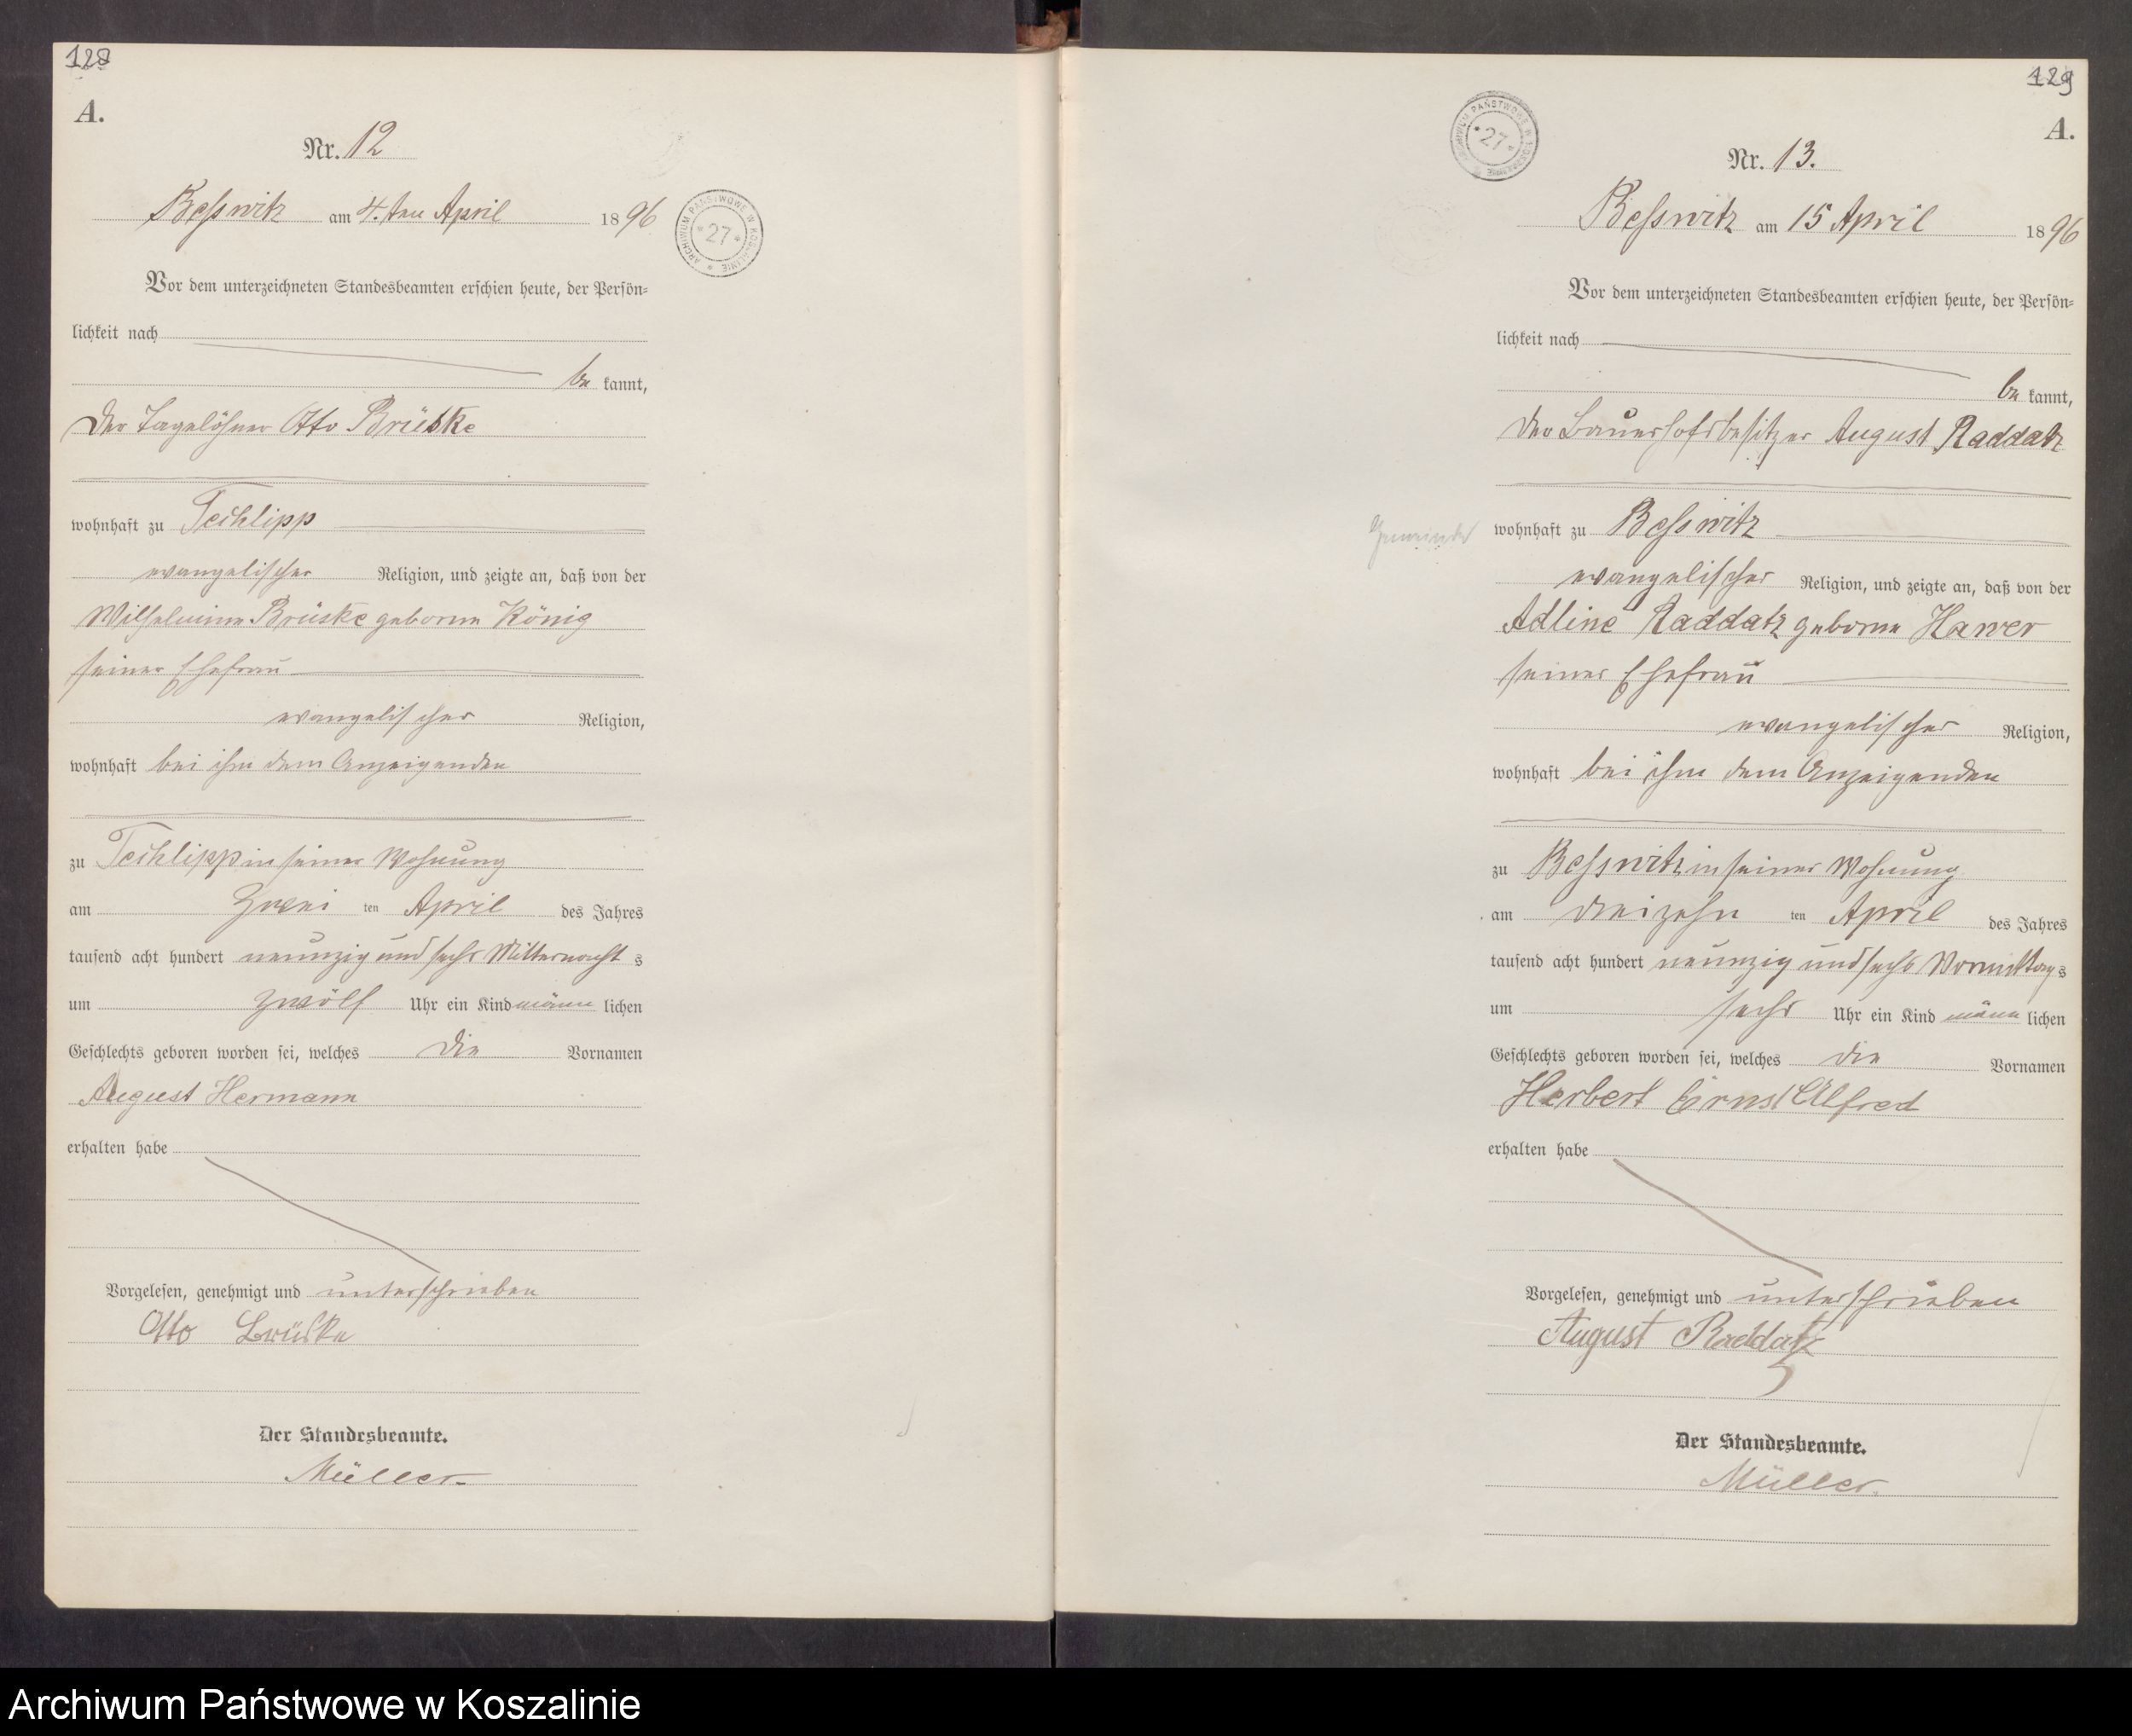 128
A.
Nr. 12
Beßwitz am 4. ten April 1896
ARCHIWUM PAŃSTWOWE W KOSZALINIE * 27 *
Vor dem unterzeichneten Standesbeamten erschien heute, der Persön-
lichkeit nach
be kannt,
der Tagelöhner Otto Brüske
wohnhaft zu Techlipp
evangelischer Religion, und zeigte an, daß von der
Wilhelmine Brüske geborne König
seiner Ehefrau
evangelischer Religion,
wohnhaft bei ihm dem Anzeigenden
zu Techlipp in seiner Wohnung
am zwei ten April des Jahres
tausend acht hundert neunzig und sechs Mitternacht s
um zwölf Uhr ein Kind männ lichen
Geschlechts geboren worden sei, welches die Vornamen
August Hermann
erhalten habe
Vorgelesen, genehmigt und unterschrieben
Otto Brüske
Der Standesbeamte.
Müller.
129
A.
ARCHIWUM PAŃSTWOWE W KOSZALINIE * 27 *
Nr. 13.
Beßwitz am 15 April 1896
Vor dem unterzeichneten Standesbeamten erschien heute, der Persön-
lichkeit nach
be kannt,
der Bauerhofsbesitzer August Raddatz
wohnhaft zu Beßwitz
evangelischer Religion, und zeigte an, daß von der
Adline Raddatz geborne Hawer
seiner Ehefrau
evangelischer Religion,
wohnhaft bei ihm dem Anzeigenden
zu Beßwitz in seiner Wohnung
am dreizehn ten April des Jahres
tausend acht hundert neunzig und sechs Vormittag s
um sechs Uhr ein Kind männ lichen
Geschlechts geboren worden sei, welches die Vornamen
Herbert Ernst Alfred
erhalten habe
Vorgelesen, genehmigt und unterschrieben
August Raddatz
Der Standesbeamte.
Müller.
Archiwum Państwowe w Koszalinie